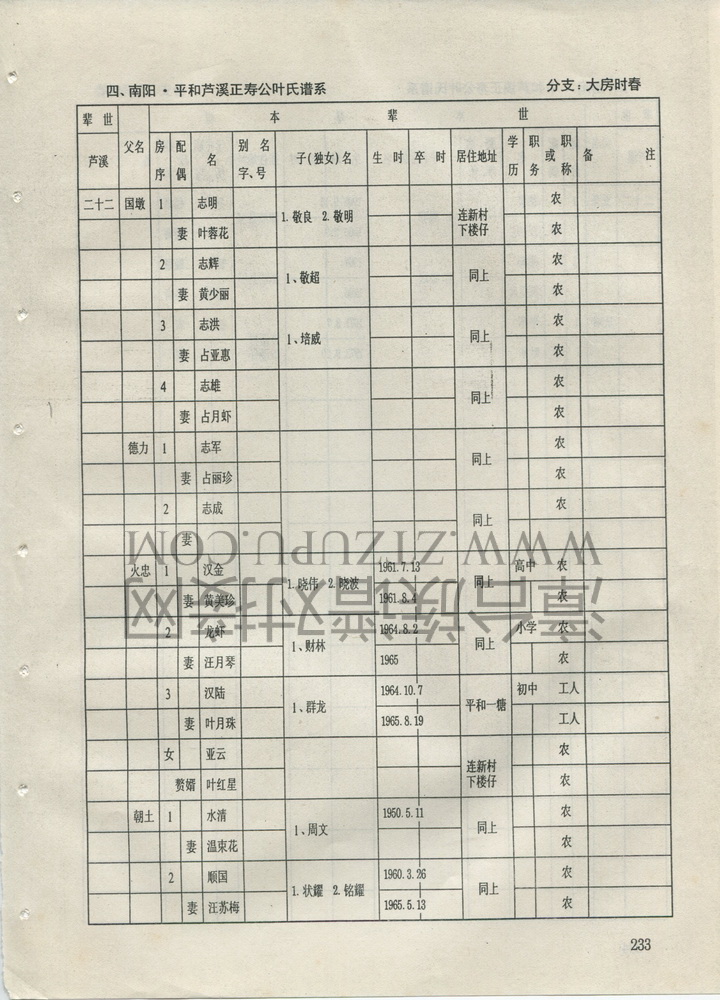 四、南阳·平和芦溪正寿公叶氏谱系 分支：大房时春
辈世 父名 本辈世
芦溪 房序 配偶 名 别名字、号 子(独女)名 生时 卒时 居住地址 学历 职务或职称 备注
二十二 国墩 1 志明 1.敬良 2.敬明 连新村下楼仔 农
妻 叶蓉花 农
2 志辉 1、敬超 同上 农
妻 黄少丽 农
3 志洪 1、培威 同上 农
妻 占亚惠 农
4 志雄 同上 农
妻 占月虾 农
德力 1 志军 同上 农
妻 占丽珍 农
2 志成 同上 农
妻
火忠 1 汉金 1.晓伟 2.晓波 1961.7.13 同上 高中 农
妻 黄美珍 1961.8.4 农
2 龙虾 1、财林 1964.8.2 同上 小学 农
妻 汪月琴 1965 农
3 汉陆 1、群龙 1964.10.7 平和一糖 初中 工人
妻 叶月珠 1965.8.19 工人
女 亚云 连新村下楼仔 农
赘婿 叶红星 农
朝土 1 水清 1、周文 1950.5.11 同上 农
妻 温束花 农
2 顺国 1.状耀 2.铭耀 1960.3.26 同上 农
妻 汪苏梅 1965.5.13 农
WWW.ZTZUPU.COM
漳台族谱对接网
233